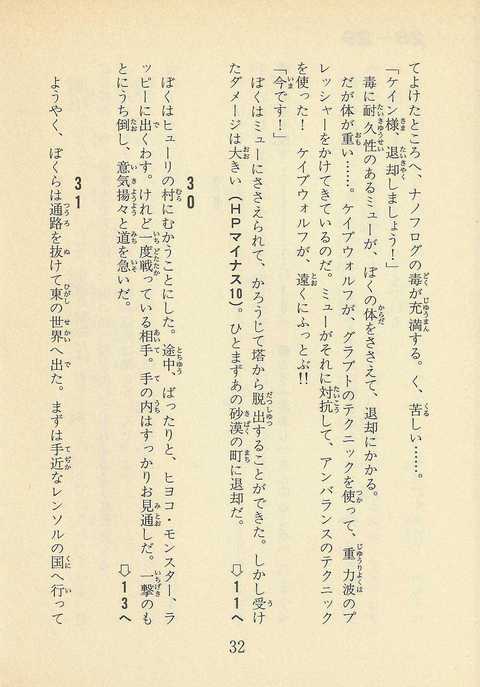 てよけたところへ、ナノフログの毒が充満する。く、苦しい……。
「ケイン様、退却しましょう！」
毒に耐久性のあるミューが、ぼくの体をささえて、退却にかかる。
だが体が重い……。ケイブウォルフが、グラブトのテクニックを使って、重力波のプ
レッシャーをかけてきているのだ。ミューがそれに対抗して、アンバランスのテクニック
を使った！　ケイブウォルフが、遠くにふっとぶ!!
「今です！」
ぼくはミューにささえられて、かろうじて塔から脱出することができた。しかし受け
たダメージは大きい（ＨＰマイナス10）。ひとまずあの砂漠の町に退却だ。　⇩11へ
30
ぼくはヒューリの村にむかうことにした。途中、ばったりと、ヒヨコ・モンスター、ラ
ッピーに出くわす。けれど一度戦っている相手。手の内はすっかりお見通しだ。一撃のも
とにうち倒し、意気揚々と道を急いだ。　⇩13へ
31
ようやく、ぼくらは通路を抜けて東の世界へ出た。まずは手近なレンソルの国へ行って
32